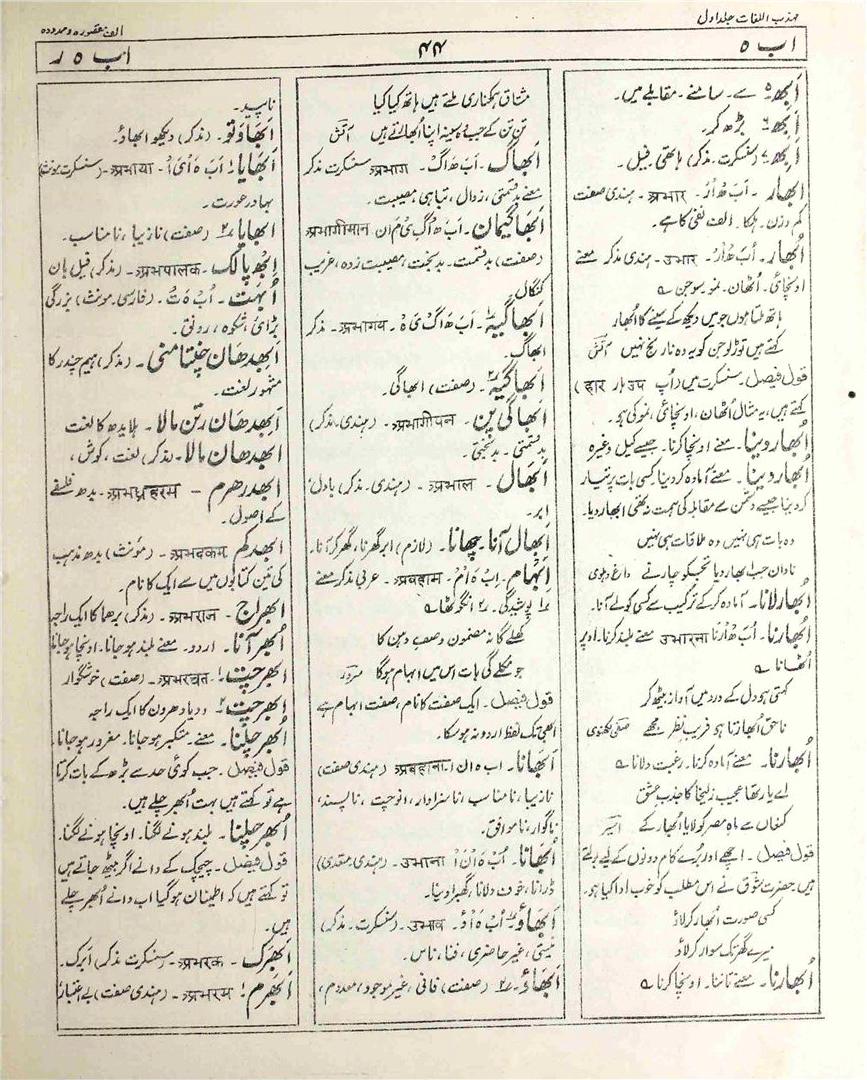 مہذب اللغات جلد اول
الف مقصورہ و ممدودہ
اب ھ
۴۴
اب ھ ر
اَبھ ۵ سے۔ سامنے۔ مقابلے میں۔
اَبھ ۶ بڑھ کر۔
اِبھ ۷ (سنسکرت۔ مذکر) ہاتھی فیل۔
اَبھار۔ اَبْ ھ اَرْ۔ प्रभार۔ ہندی صفت
کم وزن۔ ہلکا۔ الف نفی کا ہے۔
اُبھار۔ اُبْ ھ اَرْ۔ उभार۔ ہندی مذکر معنے
اونچائی۔ اُٹھان۔ نمو سوجن ؎
ہاتھ ملتا ہوں جو میں دیکھ کے سینے کا اُبھار
کہتے ہیں توڑ لو جن کو یہ وہ نارنج نہیں آتش
قول فیصل۔ سنسکرت میں (اُپ ہار उप हार)
کہتے ہیں، یہ مثال اُٹھان، اونچائی، نمو کی ہو۔
اُبھار دینا۔ معنے اونچا کرنا۔ جیسے کیل وغیرہ
اُبھار دینا۔ معنے آمادہ کر دینا۔ کسی بات پر تیار
کر دینا جیسے دشمن سے مقابلہ کی ہمت نہ تھی ابھار دیا۔
وہ بات ہی نہیں وہ ملاقات ہی نہیں
نادان جب ابھار دیا تجھکو چار نے داغ دہلوی
اُبھار لانا۔ آمادہ کر کے ترکیب سے کسی کو لے آنا۔
اُبھارنا۔ اُبْ ھ اَرْنَا उभारना معنے بلند کرنا۔ اوپر
اٹھانا ؎
کہتی ہو دل کے درد میں آواز بیٹھ کر
ناحق اُبھارتا ہو فریب نظر مجھے صفی لکھنوی
اُبھارنا۔ معنے آمادہ کرنا۔ رغبت دلانا ؎
اے یار تھا عجیب زلیخا کا جذب عشق
کنعاں سے ماہ مصر کو لایا اُبھار کے اسیر
قول فیصل۔ اچھے اور بُرے کام دونوں کے لیے بولتے
ہیں۔ حضرت شوق نے اس مطلب کو خوب ادا کیا ہو۔
کسی صورت اُبھار کر لاؤ
میرے گھر تک سوار کر لاؤ
اُبھارنا۔ معنے تاننا۔ اونچا کرنا ؎
مشتاق ہمکناری ملتے ہیں ہاتھ کیا کیا
تن تن کے جب وہ سینہ اپنا اُبھارتے ہیں آتش
اَبھاگ۔ اَبْ ھ اَگْ۔ प्रभाग۔ سنسکرت مذکر
معنے بدقسمتی، زوال، تباہی مصیبت۔
اَبھاگیمان۔ اَبْ ھ اَگ یْ مَ اْن प्रभागीमान
(صفت) بدقسمت۔ بدبخت، مصیبت زدہ، غریب
کنگال
اَبھاگیہ ۱۔ اَبْ ھ اَگ یْ ہْ۔ प्रभागय۔ مذکر
ابھاگ۔
اَبھاگیہ ۲۔ (صفت) ابھاگی۔
اَبھاگی پن۔ प्रभागीपन۔ (ہندی۔ مذکر)
بدقسمتی۔ بدبختی۔
اَبھال۔ प्रभाल۔ (ہندی۔ مذکر) بادل؛
ابر۔
اَبھال آنا۔ چھانا۔ (لازم) ابر گھرنا، گھر کر آنا۔
اِبہام۔ प्रबहाम۔ اِبْ ہ اْمْ۔ عربی مذکر معنے
۱) پوشیدگی۔ ۲) انگوٹھا ؎
کھلے گا نہ مضمون وصف دہن کا
جو نکلے گی بات اس میں ابہام ہوگا سرور
قول فیصل۔ ایک صفت کا نام، صفت ابہام ہے
ابھی تک لفظ اردو نہ ہوسکا۔
اَبھانا۔ اب ہ ان ا۔ प्रबहाना۔ (ہندی صفت)
نازیبا، نامناسب، ناسزاوار، انوچیت، ناپسند،
ناگوار، ناموافق۔
اُبھانا۔ اُبْ ہ اْنَ اْ۔ उभाना۔ (ہندی۔ متعدی)
ڈرانا، خوف دلانا، گھبرا دینا۔
اَبھاؤ ۱۔ اُبْ ہ اَوْ۔ उभाव۔ (سنسکرت۔ مذکر)
نیستی، غیر حاضری، فنا، ناس۔
اَبھاؤ ۲۔ (صفت) فانی، غیر موجود، معدوم،
ناپید۔
اَبھاوَتو۔ (مذکر) دیکھو ابھاؤ۔
اَبھایا ۱۔ اَبَ ہ اْیَ اْ۔ प्रभाया۔ (سنسکرت مونث)
بہادر عورت۔
اَبھایا ۲۔ (صفت) نازیبا، نامناسب۔
اِبھ پالک۔ प्रभपालक۔ (مذکر) فیل بان
اُبہت۔ اُبْ ہَ تْ۔ (فارسی۔ مونث) بزرگی
بڑائی، شکوہ، رونق۔
اَبھدھان چنتامنی۔ (مذکر) ہیم چندر کا
مشہور لغت۔
اَبھدھان رتن مالا۔ ہلایدھ کا لغت
اَبھدھان مالا۔ (مذکر) لغت، کوش،
اَبھدرھرم۔ प्रभध्रहरम۔ بدھ فلسفے
کے اصول۔
اَبھدکم प्रभदकम۔ (مؤنث) بدھ مذہب
کی تین کتابوں میں سے ایک کا نام۔
اَبھراج۔ प्रभराज۔ (مذکر) برھما کا ایک راجہ
اُبھر آنا۔ اردو۔ معنے بلند ہو جانا۔ اونچا ہو جانا
اَبھرچت ۱۔ प्रभरचत۔ (صفت) خوشگوار
اَبھرچت ۲۔ ودیا دھروں کا ایک راجہ
اُبھر چلنا۔ معنے۔ متکبر ہو جانا۔ مغرور ہو جانا۔
قول فیصل۔ جب کوئی حد سے بڑھ کے بات کرتا
ہے تو کہتے ہیں بہت اُبھر چلے ہیں۔
اُبھر چلنا۔ بلند ہونے لگنا۔ اونچا ہونے لگنا۔
قول فیصل۔ چیچک کے دانے اگر بیٹھ جاتے ہیں
تو کہتے ہیں کہ اطینان ہوگیا اب دانے اُبھر چلے
ہیں۔
اَبھرک۔ प्रभरक۔ (سنسکرت مذکر) اَبرک۔
اَبھرم ۱۔ प्रभरम۔ (ہندی صفت) بے اعتبار؛